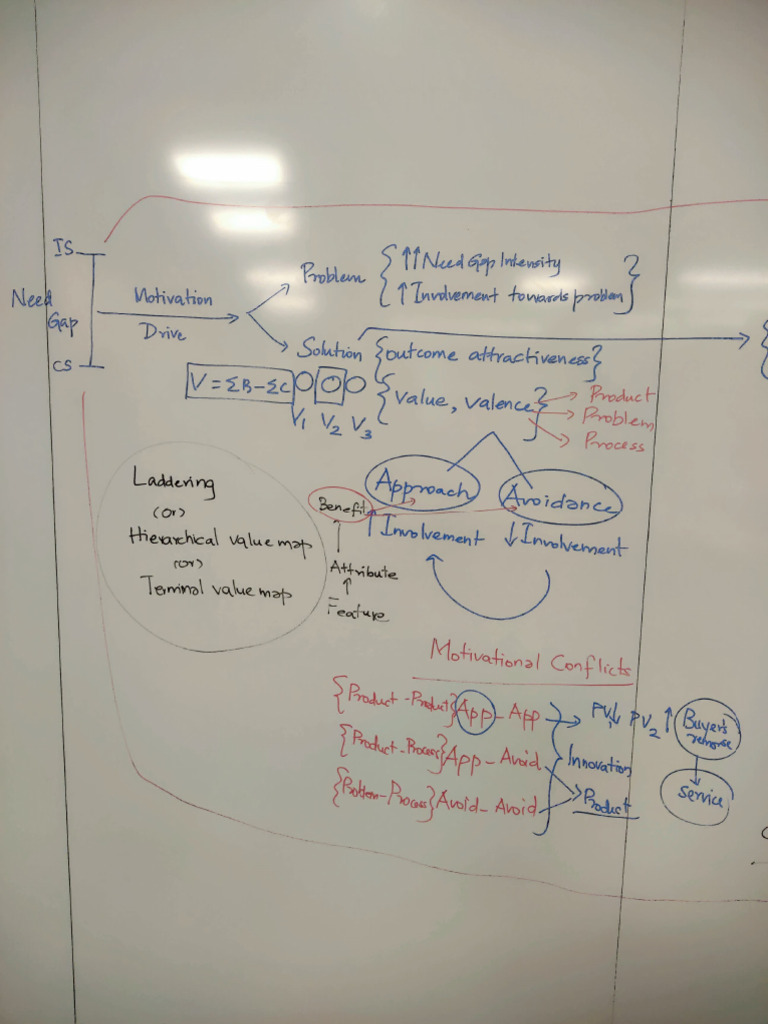 IS
Need
Gap
CS
Motivation
Drive
Problem { ↑↑ Need Gap Intensity
↑ Involvement towards problem }
Solution { outcome attractiveness }
V = ΣB - ΣC
V1 V2 V3
{ value, valence }
Product
Problem
Process
Approach
Avoidance
↑ Involvement
↓ Involvement
Laddering
(or)
Hierarchical value map
(or)
Terminal value map
Benefit
Attribute
Feature
Motivational Conflicts
{Product - Product} App - App
{Product - Process} App - Avoid
{Problem - Process} Avoid - Avoid
PV1↓ PV2↑
Innovation
Product
Buyer's
remorse
Service